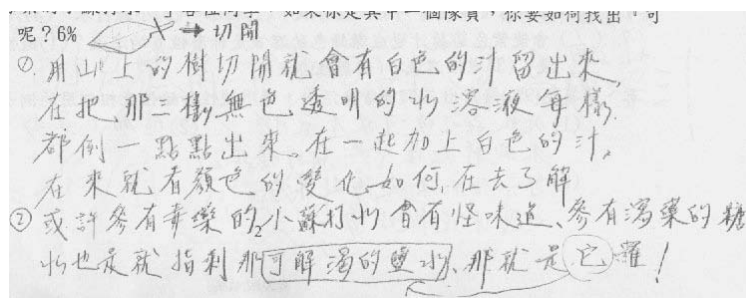 如果你是其中一個隊員，你要如何找出
呢？6% → 切開
①. 用山上的樹切開就會有白色的汁留出來,
在把那三樣無色透明的水溶液每樣
都倒一點點出來。在一起加上白色的汁,
在來就看顏色的變化如何,在去了解
② 或許參有毒藥的小蘇打水會有怪味道、參有瀉藥的糖
水也是就指剩那可解渴的鹽水、那就是它羅!